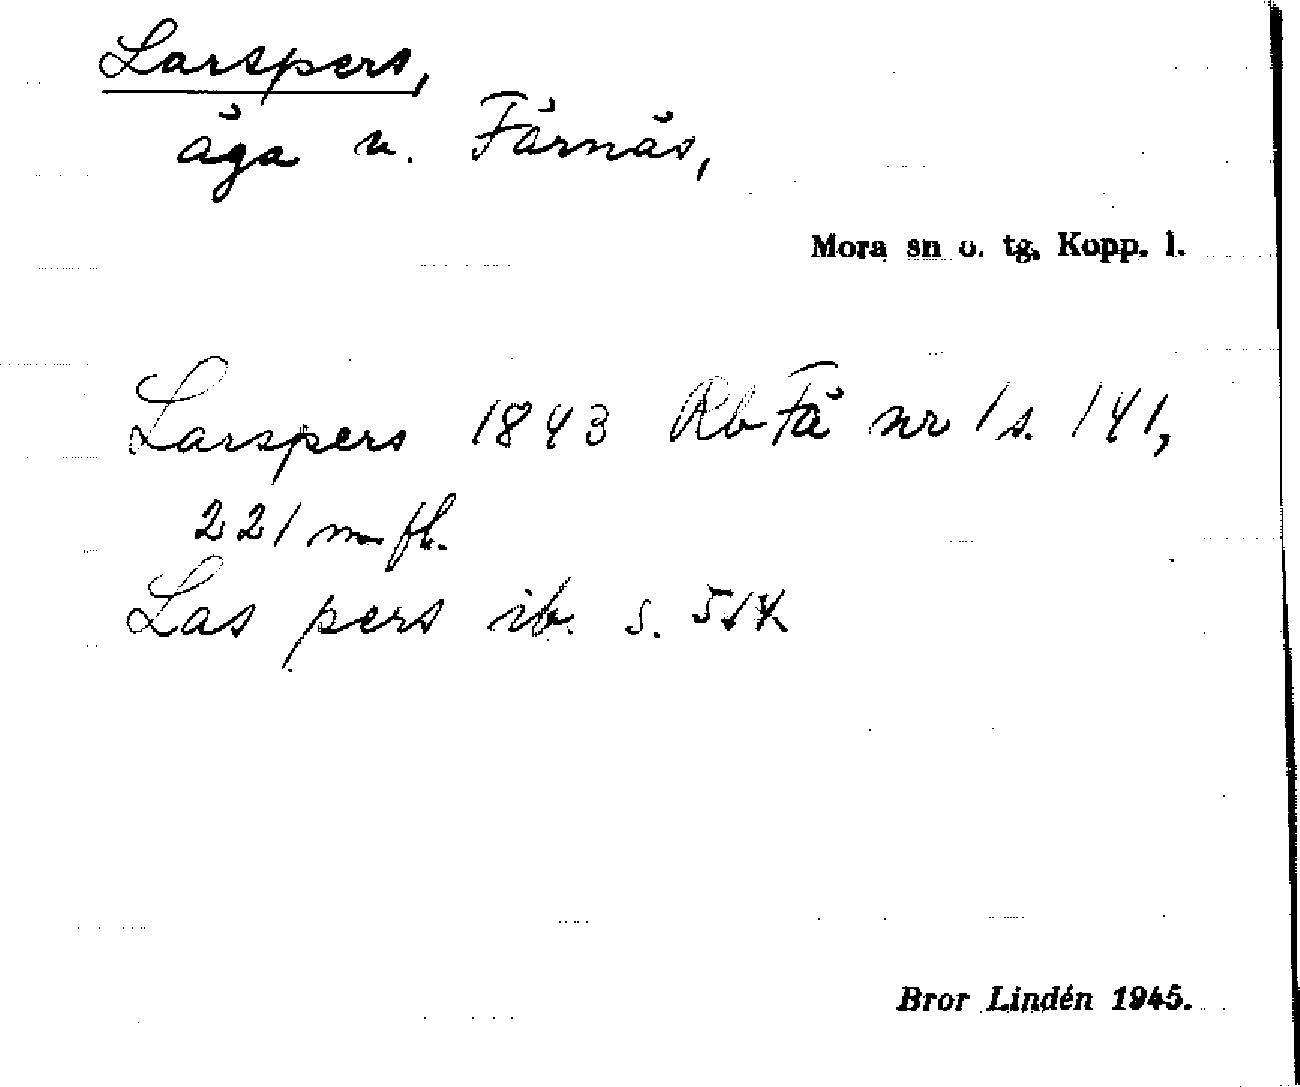 Larspers,
äga u. Färnäs,
Mora sn o. tg, Kopp. l.
Larspers 1843 Rb Fä nr 1 s. 141,
221 m fl.
Las pers ib. s.
Bror Lindén 1945.